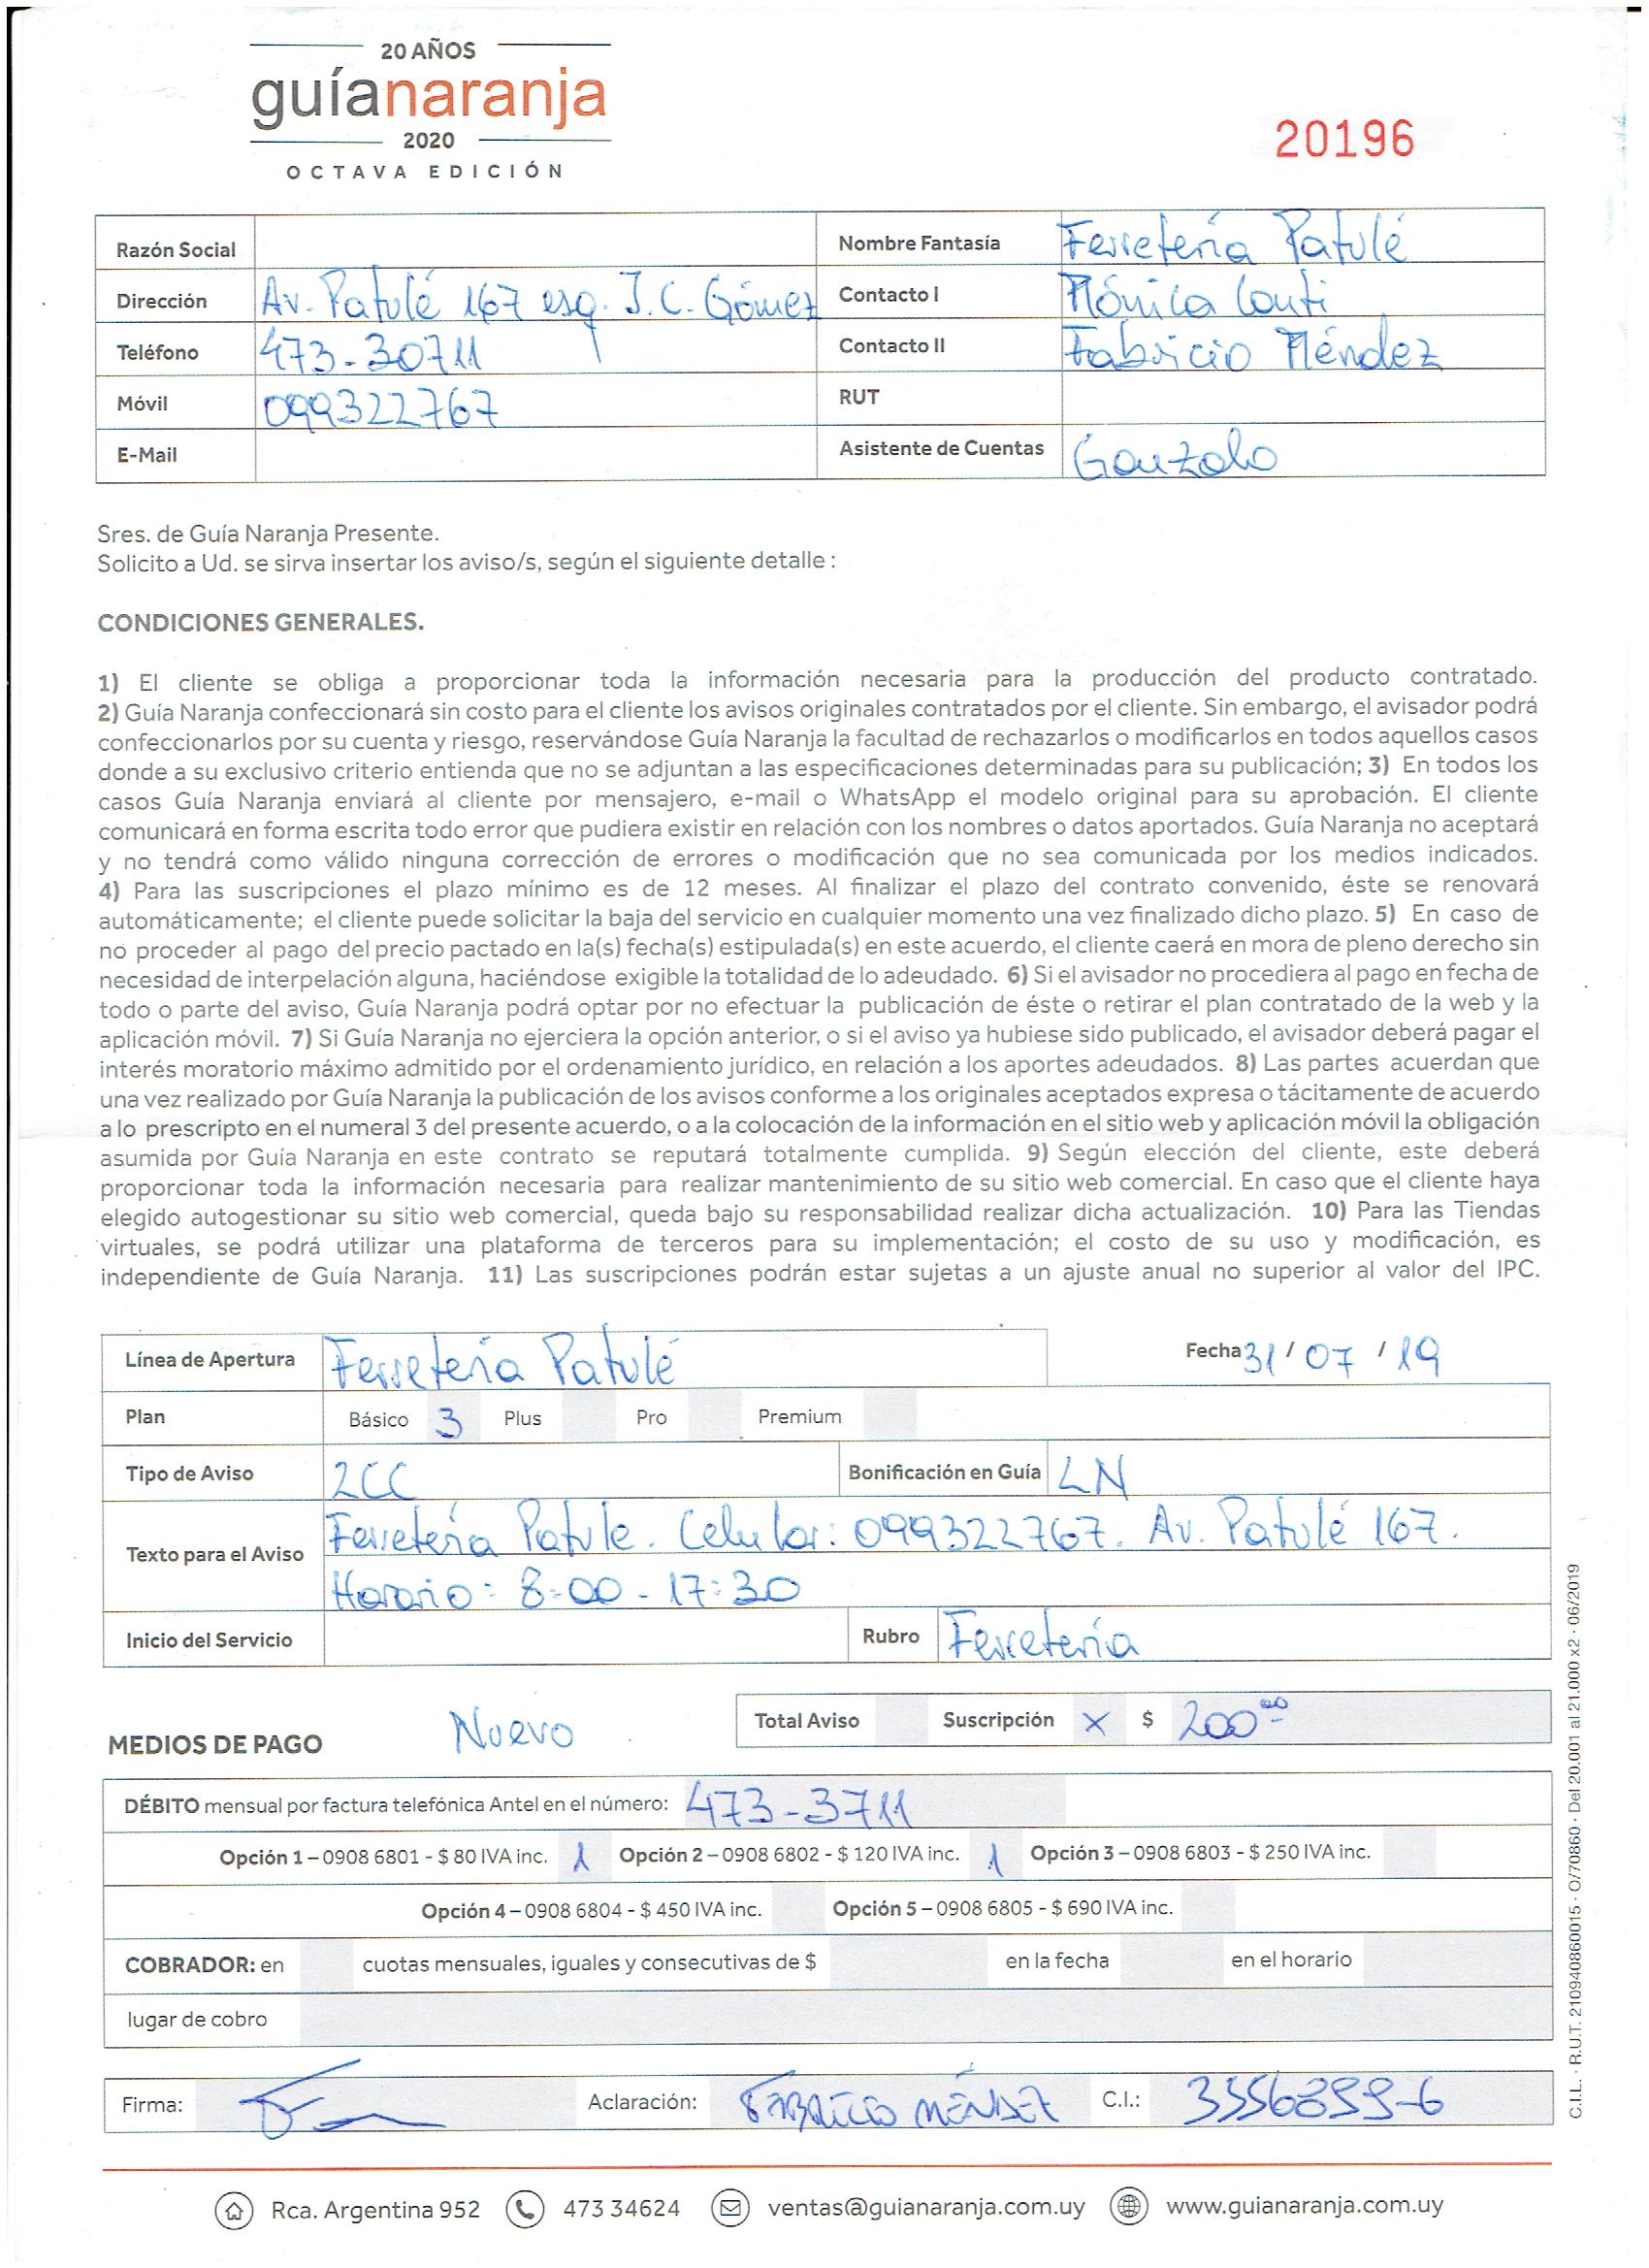 20 AÑOS
guíanaranja
2020
OCTAVA EDICIÓN
20196
Razón Social
Nombre Fantasía Ferretería Patulé
Dirección Av. Patulé 167 esq. J.C. Gómez Contacto I Mónica Conti
Teléfono 473-30711 Contacto II Fabricio Méndez
Móvil 099322767 RUT
E-Mail Asistente de Cuentas Gonzalo
Sres. de Guía Naranja Presente.
Solicito a Ud. se sirva insertar los aviso/s, según el siguiente detalle :
CONDICIONES GENERALES.
1) El cliente se obliga a proporcionar toda la información necesaria para la producción del producto contratado.
2) Guía Naranja confeccionará sin costo para el cliente los avisos originales contratados por el cliente. Sin embargo, el avisador podrá
confeccionarlos por su cuenta y riesgo, reservándose Guía Naranja la facultad de rechazarlos o modificarlos en todos aquellos casos
donde a su exclusivo criterio entienda que no se adjuntan a las especificaciones determinadas para su publicación; 3) En todos los
casos Guía Naranja enviará al cliente por mensajero, e-mail o WhatsApp el modelo original para su aprobación. El cliente
comunicará en forma escrita todo error que pudiera existir en relación con los nombres o datos aportados. Guía Naranja no aceptará
y no tendrá como válido ninguna corrección de errores o modificación que no sea comunicada por los medios indicados.
4) Para las suscripciones el plazo mínimo es de 12 meses. Al finalizar el plazo del contrato convenido, éste se renovará
automáticamente; el cliente puede solicitar la baja del servicio en cualquier momento una vez finalizado dicho plazo. 5) En caso de
no proceder al pago del precio pactado en la(s) fecha(s) estipulada(s) en este acuerdo, el cliente caerá en mora de pleno derecho sin
necesidad de interpelación alguna, haciéndose exigible la totalidad de lo adeudado. 6) Si el avisador no procediera al pago en fecha de
todo o parte del aviso, Guía Naranja podrá optar por no efectuar la publicación de éste o retirar el plan contratado de la web y la
aplicación móvil. 7) Si Guía Naranja no ejerciera la opción anterior, o si el aviso ya hubiese sido publicado, el avisador deberá pagar el
interés moratorio máximo admitido por el ordenamiento jurídico, en relación a los aportes adeudados. 8) Las partes acuerdan que
una vez realizado por Guía Naranja la publicación de los avisos conforme a los originales aceptados expresa o tácitamente de acuerdo
a lo prescripto en el numeral 3 del presente acuerdo, o a la colocación de la información en el sitio web y aplicación móvil la obligación
asumida por Guía Naranja en este contrato se reputará totalmente cumplida. 9) Según elección del cliente, este deberá
proporcionar toda la información necesaria para realizar mantenimiento de su sitio web comercial. En caso que el cliente haya
elegido autogestionar su sitio web comercial, queda bajo su responsabilidad realizar dicha actualización. 10) Para las Tiendas
virtuales, se podrá utilizar una plataforma de terceros para su implementación; el costo de su uso y modificación, es
independiente de Guía Naranja. 11) Las suscripciones podrán estar sujetas a un ajuste anual no superior al valor del IPC.
Línea de Apertura Ferretería Patulé Fecha 31 / 07 / 19
Plan Básico 3 Plus Pro Premium
Tipo de Aviso 2CC Bonificación en Guía LN
Texto para el Aviso Ferretería Patule. Celular: 099322767. Av. Patulé 167.
Horario: 8:00 - 17:30
Inicio del Servicio Rubro Ferretería
MEDIOS DE PAGO Nuevo Total Aviso Suscripción X $ 200 00
DÉBITO mensual por factura telefónica Antel en el número: 473-3711
Opción 1 – 0908 6801 - $ 80 IVA inc. 1 Opción 2 – 0908 6802 - $ 120 IVA inc. 1 Opción 3 – 0908 6803 - $ 250 IVA inc.
Opción 4 – 0908 6804 - $ 450 IVA inc. Opción 5 – 0908 6805 - $ 690 IVA inc.
COBRADOR: en cuotas mensuales, iguales y consecutivas de $ en la fecha en el horario
lugar de cobro
Firma: Aclaración: FABRICIO MÉNDEZ C.I.: 3356899-6
Rca. Argentina 952 473 34624 ventas@guianaranja.com.uy www.guianaranja.com.uy
C.I.L. · R.U.T. 210940860015 · O/70860 · Del 20.001 al 21.000 x2 · 06/2019